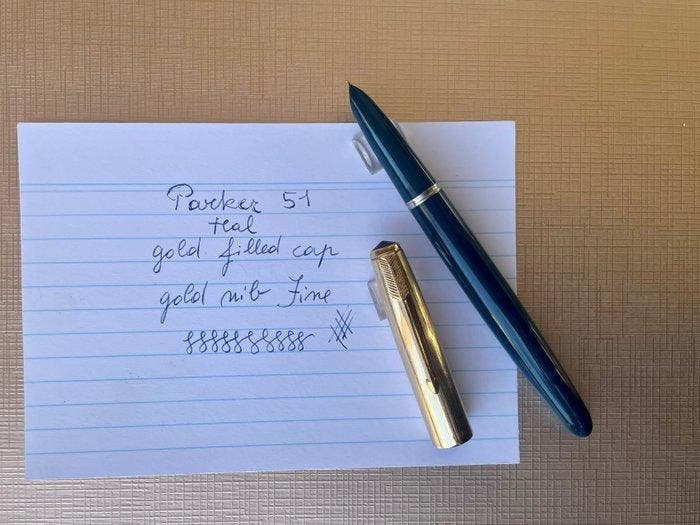 Parker 51
teal
gold filled cap
gold nib Fine